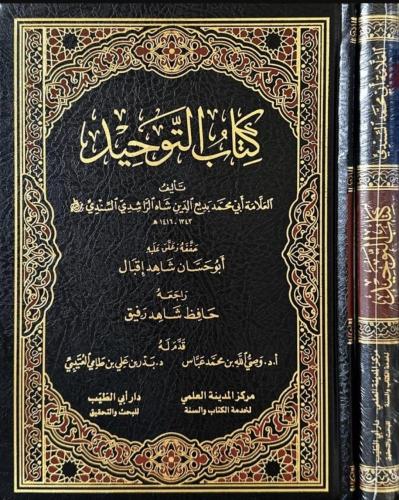 كتاب التوحيد
تأليف
العلامة أبي محمد بديع الدين شاه الراشدي السندي
١٣٤٣ - ١٤١٦ هـ
حققه وعلق عليه
أبو حسان شاهد إقبال
راجعه
حافظ شاهد رفيق
قدم له
أ.د. وصي الله بن محمد عباس
د. بدر بن علي بن طامي العتيبي
مركز المدينة العلمي
لخدمة الكتاب والسنة
دار أبي الطيب
للبحث والتحقيق
كتاب التوحيد
مركز المدينة العلمي
لخدمة الكتاب والسنة
دار أبي الطيب
للبحث والتحقيق